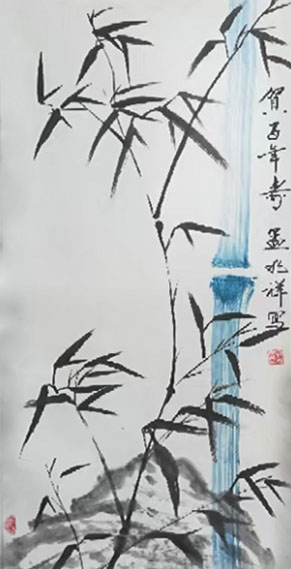 賀百年壽 孟兆祥寫